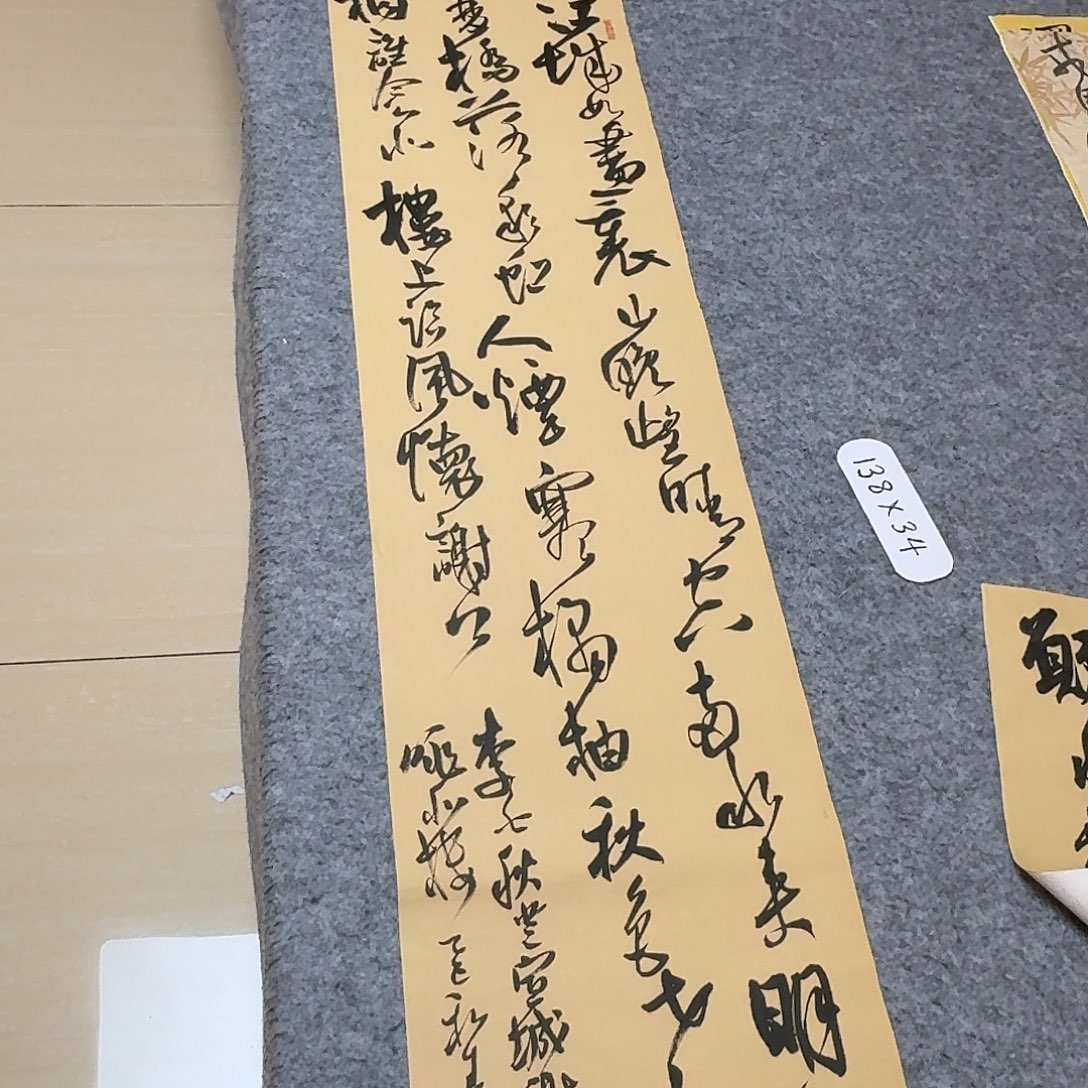 江城如畫裏山晚望晴空兩水夾明
雙橋落彩虹人煙寒橘柚秋色老
桐誰念北樓上臨風懷謝公
李白秋登宣城謝
眺北樓 乙巳秋
138X34